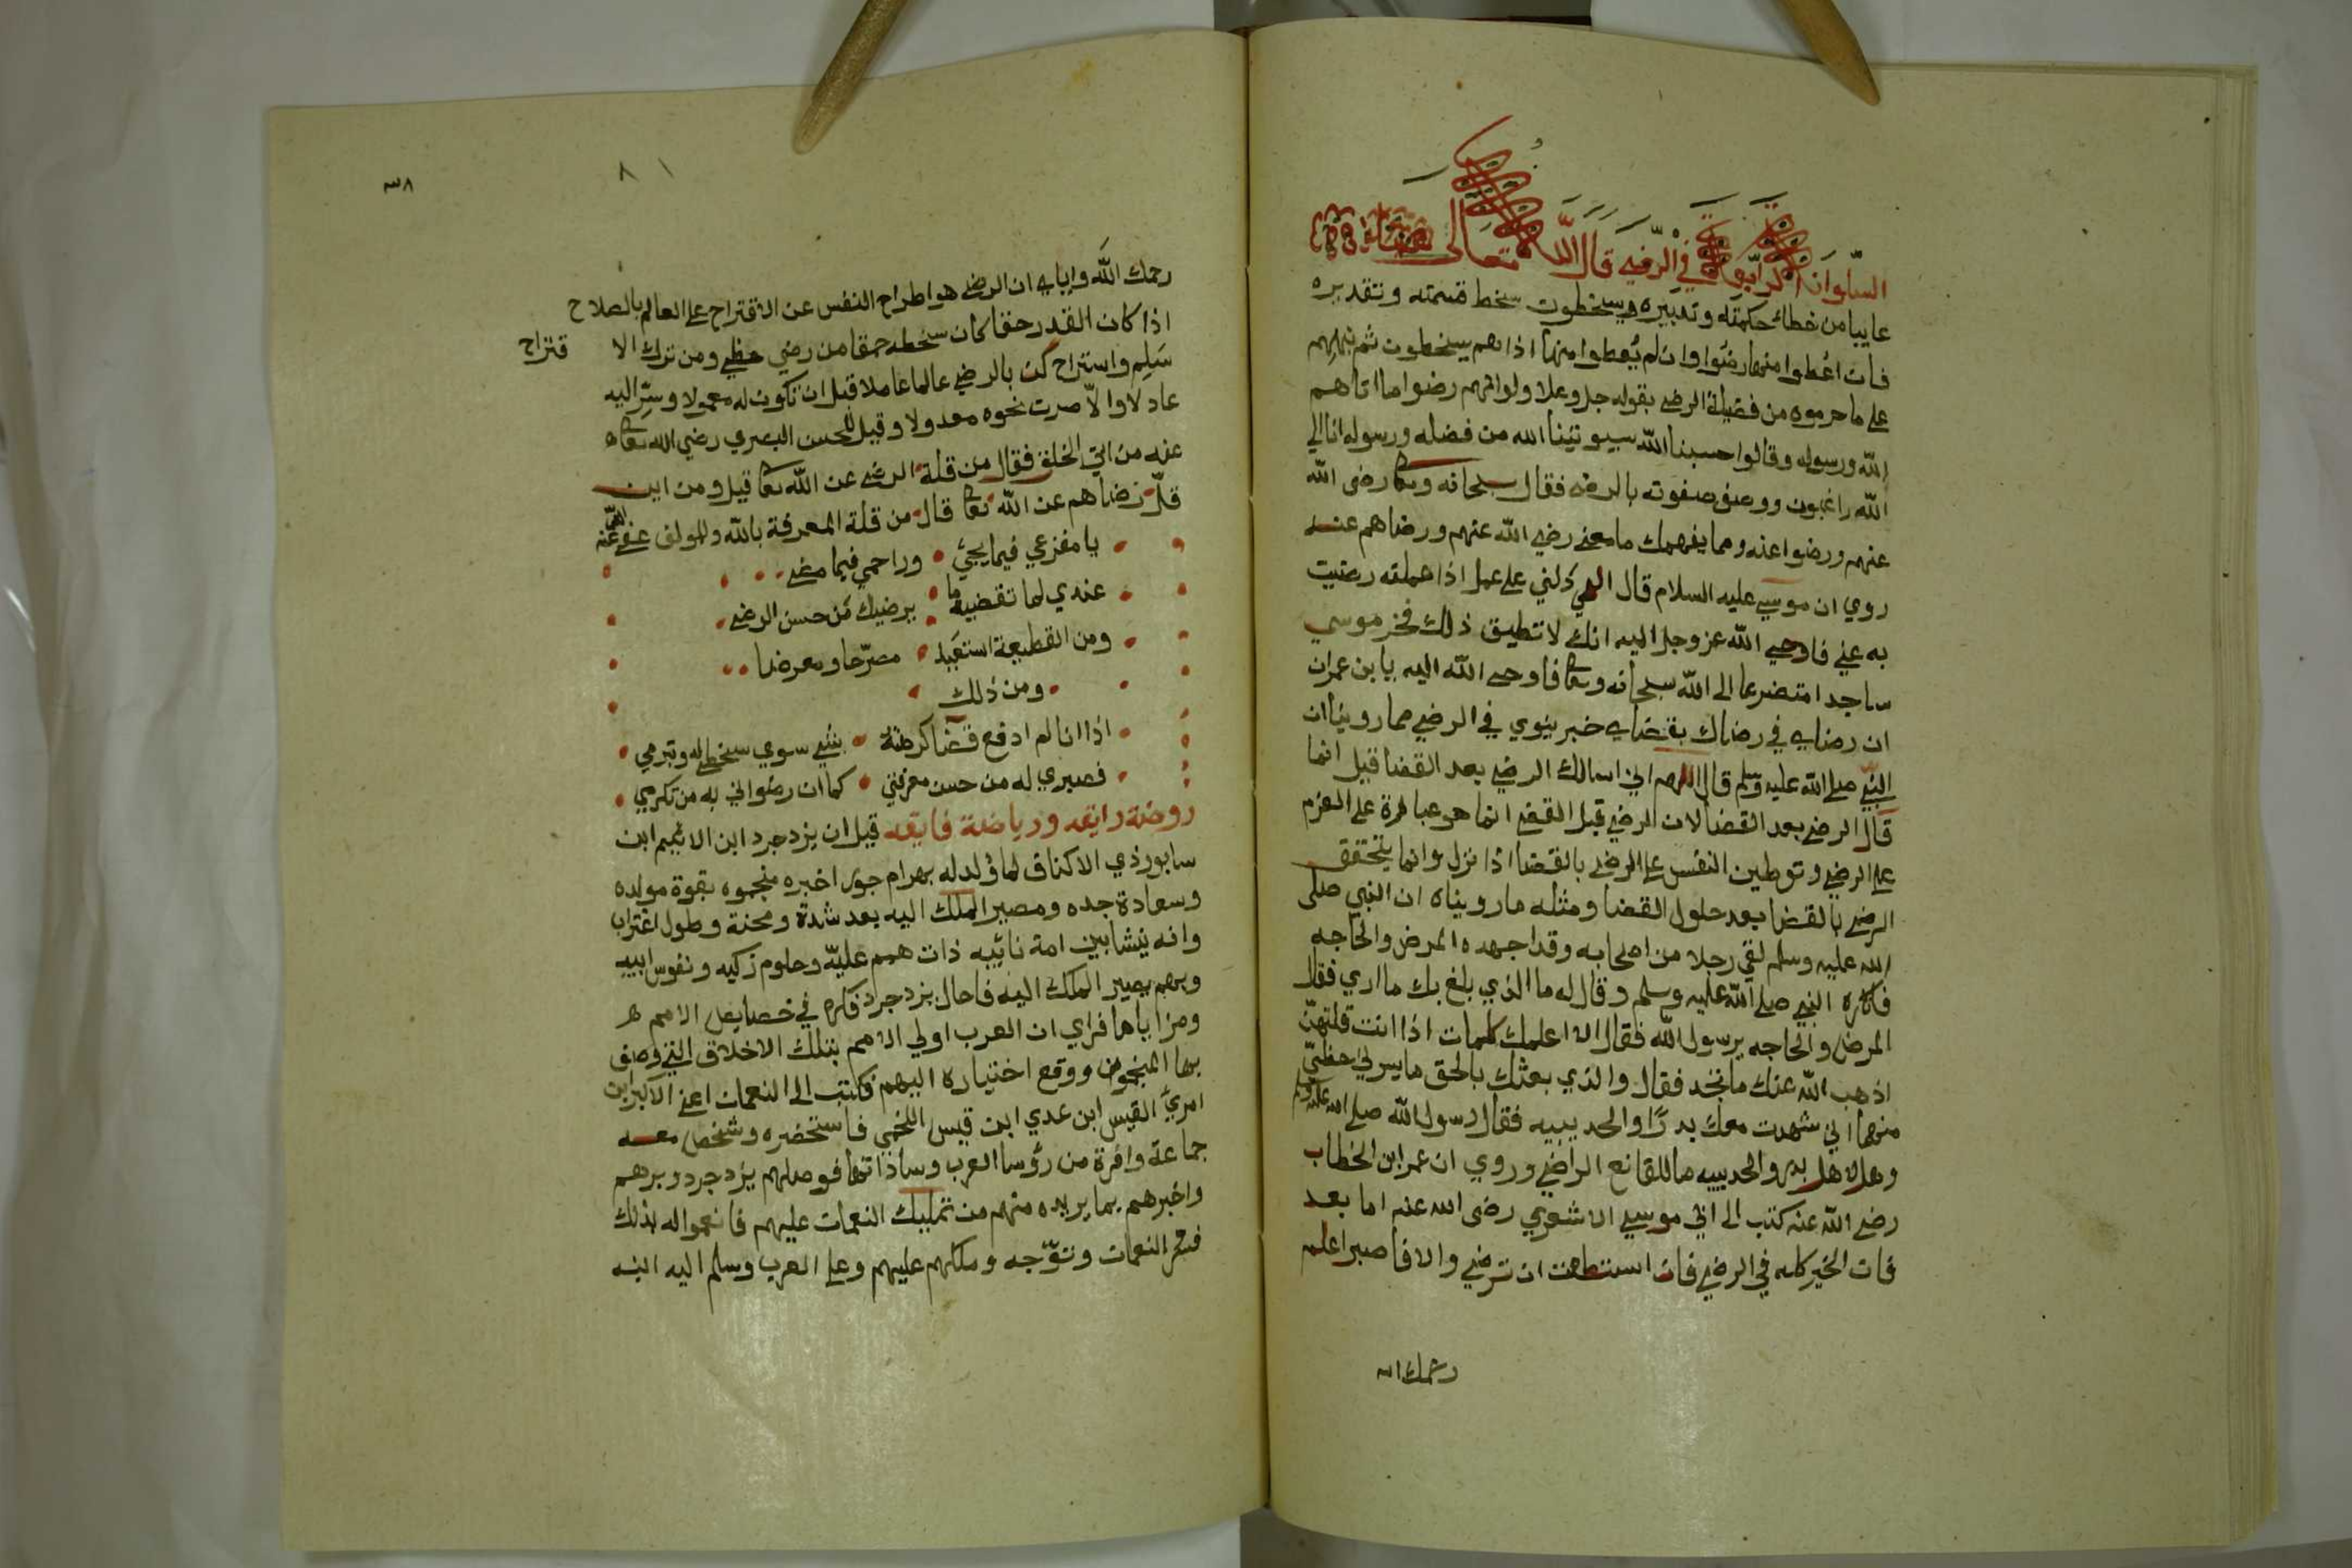 السلوانه الرابعة في الرضى قال الله تعالى
عايبا من خطاء حكمته وتدبيره ويسخطون سخط قسمته وتقديره
فان اعطوا منها رضوا وان لم يعطوا منها اذا هم يسخطون ثم نبههم
على ما حرموه من فضيلة الرضى بقوله جل وعلا ولو انهم رضوا ما اتاهم
الله ورسوله وقالوا حسبنا الله سيوتينا الله من فضله ورسوله انا الى
الله راغبون ووصف صفوته بالرضى فقال سبحانه وتعا رضى الله
عنهم ورضوا عنه ومما يفهمك ما معنى رضي الله عنهم ورضاهم عنه
روي ان موسى عليه السلام قال الهي دلني على عمل اذا عملته رضيت
به عني فاوحى الله عز وجل اليه انك لا تطيق ذلك فخر موسي
ساجدا متضرعا الى الله سبحانه وتعا فاوحى الله اليه يا بن عمران
ان رضاي في رضاك بقضاي خبر نبوي في الرضى مما روينا ان
النبي صلى الله عليه وسلم قال اللهم اني اسالك الرضى بعد القضا قيل انما
قال الرضى بعد القضا لان الرضى قبل القضى انما هو عبارة على العزم
على الرضى وتوطين النفس على الرضى بالقضا اذا نزل وانما يتحقق
الرضى بالقضا بعد حلول القضا ومثله ما رويناه ان النبي صلى
الله عليه وسلم لقي رجلا من اصحابه وقد اجهده المرض والحاجه
فانكره النبي صلى الله عليه وسلم وقال له ما الذي بلغ بك ما اري فقال
المرض والحاجه يرسول الله فقال الا اعلمك كلمات اذا انت قلتهن
اذهب الله عنك ما تجد فقال والذي بعثك بالحق ما يسرني حظي
منهما اني شهدت معك بدرا والحديبيه فقال رسول الله صلى الله عليه وسلم
وهل لاهل بدر والحديبيه ما للقانع الراضي وروي ان عمر ابن الخطاب
رضى الله عنه كتب الى ابي موسى الاشعري رضى الله عنه اما بعد
فان الخير كله في الرضى فان استطعت ان ترضى والا فاصبر اعلم
رحمك الله
٣٨
٨١
رحمك الله واياي ان الرضى هو اطراح النفس عن الاقتراح على العالم بالصلاح
اذا كان القدر حقا كان سخطه حمقا من رضي حظي ومن ترك الا قتراح
سلم واستراح كن بالرضى عالما عاملا قبل ان تكون له معمولا وسر اليه
عادلا والا صرت نحوه معدولا وقيل للحسن البصري رضي الله تعا
عنه من اتى الخلق فقال من قلة الرضى عن الله تعا قيل ومن اين
قل رضاهم عن الله تعا قال من قلة المعرفة بالله وللمولف عفى الله عنه
يا مفزعي فيما يجئ وراحمي فيما مضى
عندي لما تقضيه ما يرضيك من حسن الرضى
ومن القطيعة استعيد مصرحا ومعرضا
ومن ذلك
اذا انا لم ادفع قضا كرهته بشئ سوي سخطي له وتبرمي
فصبري له من حسن معرفتي كما ان رضواني به من تكرمي
روضة رايقه ورياضة فايقه قيل ان يزدجرد ابن الاثيم ابن
سابور ذي الاكتاف لما ولد له بهرام جور اخبره منجموه بقوة مولده
وسعادة جده ومصير الملك اليه بعد شدة ومحنة وطول اغتراب
وانه ينشا بين امة نائيه ذات همم عليه وحلوم زكيه ونفوس ابيه
وبهم يصير الملك اليه فاحال يزدجرد فكره في خصايص الامم
ومزاياها فراي ان العرب اولي الامم بتلك الاخلاق التي وصف
بها المنجمون ووقع اختياره اليهم فكتب الى النعمان اعني الاكبر ابن
امرئ القيس ابن عدي ابن قيس اللخمي فاستحضره وشخص معه
جماعة وافرة من رؤسا العرب وساداتها فوصلهم يزدجرد وبرهم
واخبرهم بما يريده منهم من تمليك النعمان عليهم فانعموا له بذلك
فتحر النعمان وتوجه وملكهم عليهم وعلى العرب وسلم اليه ابنه